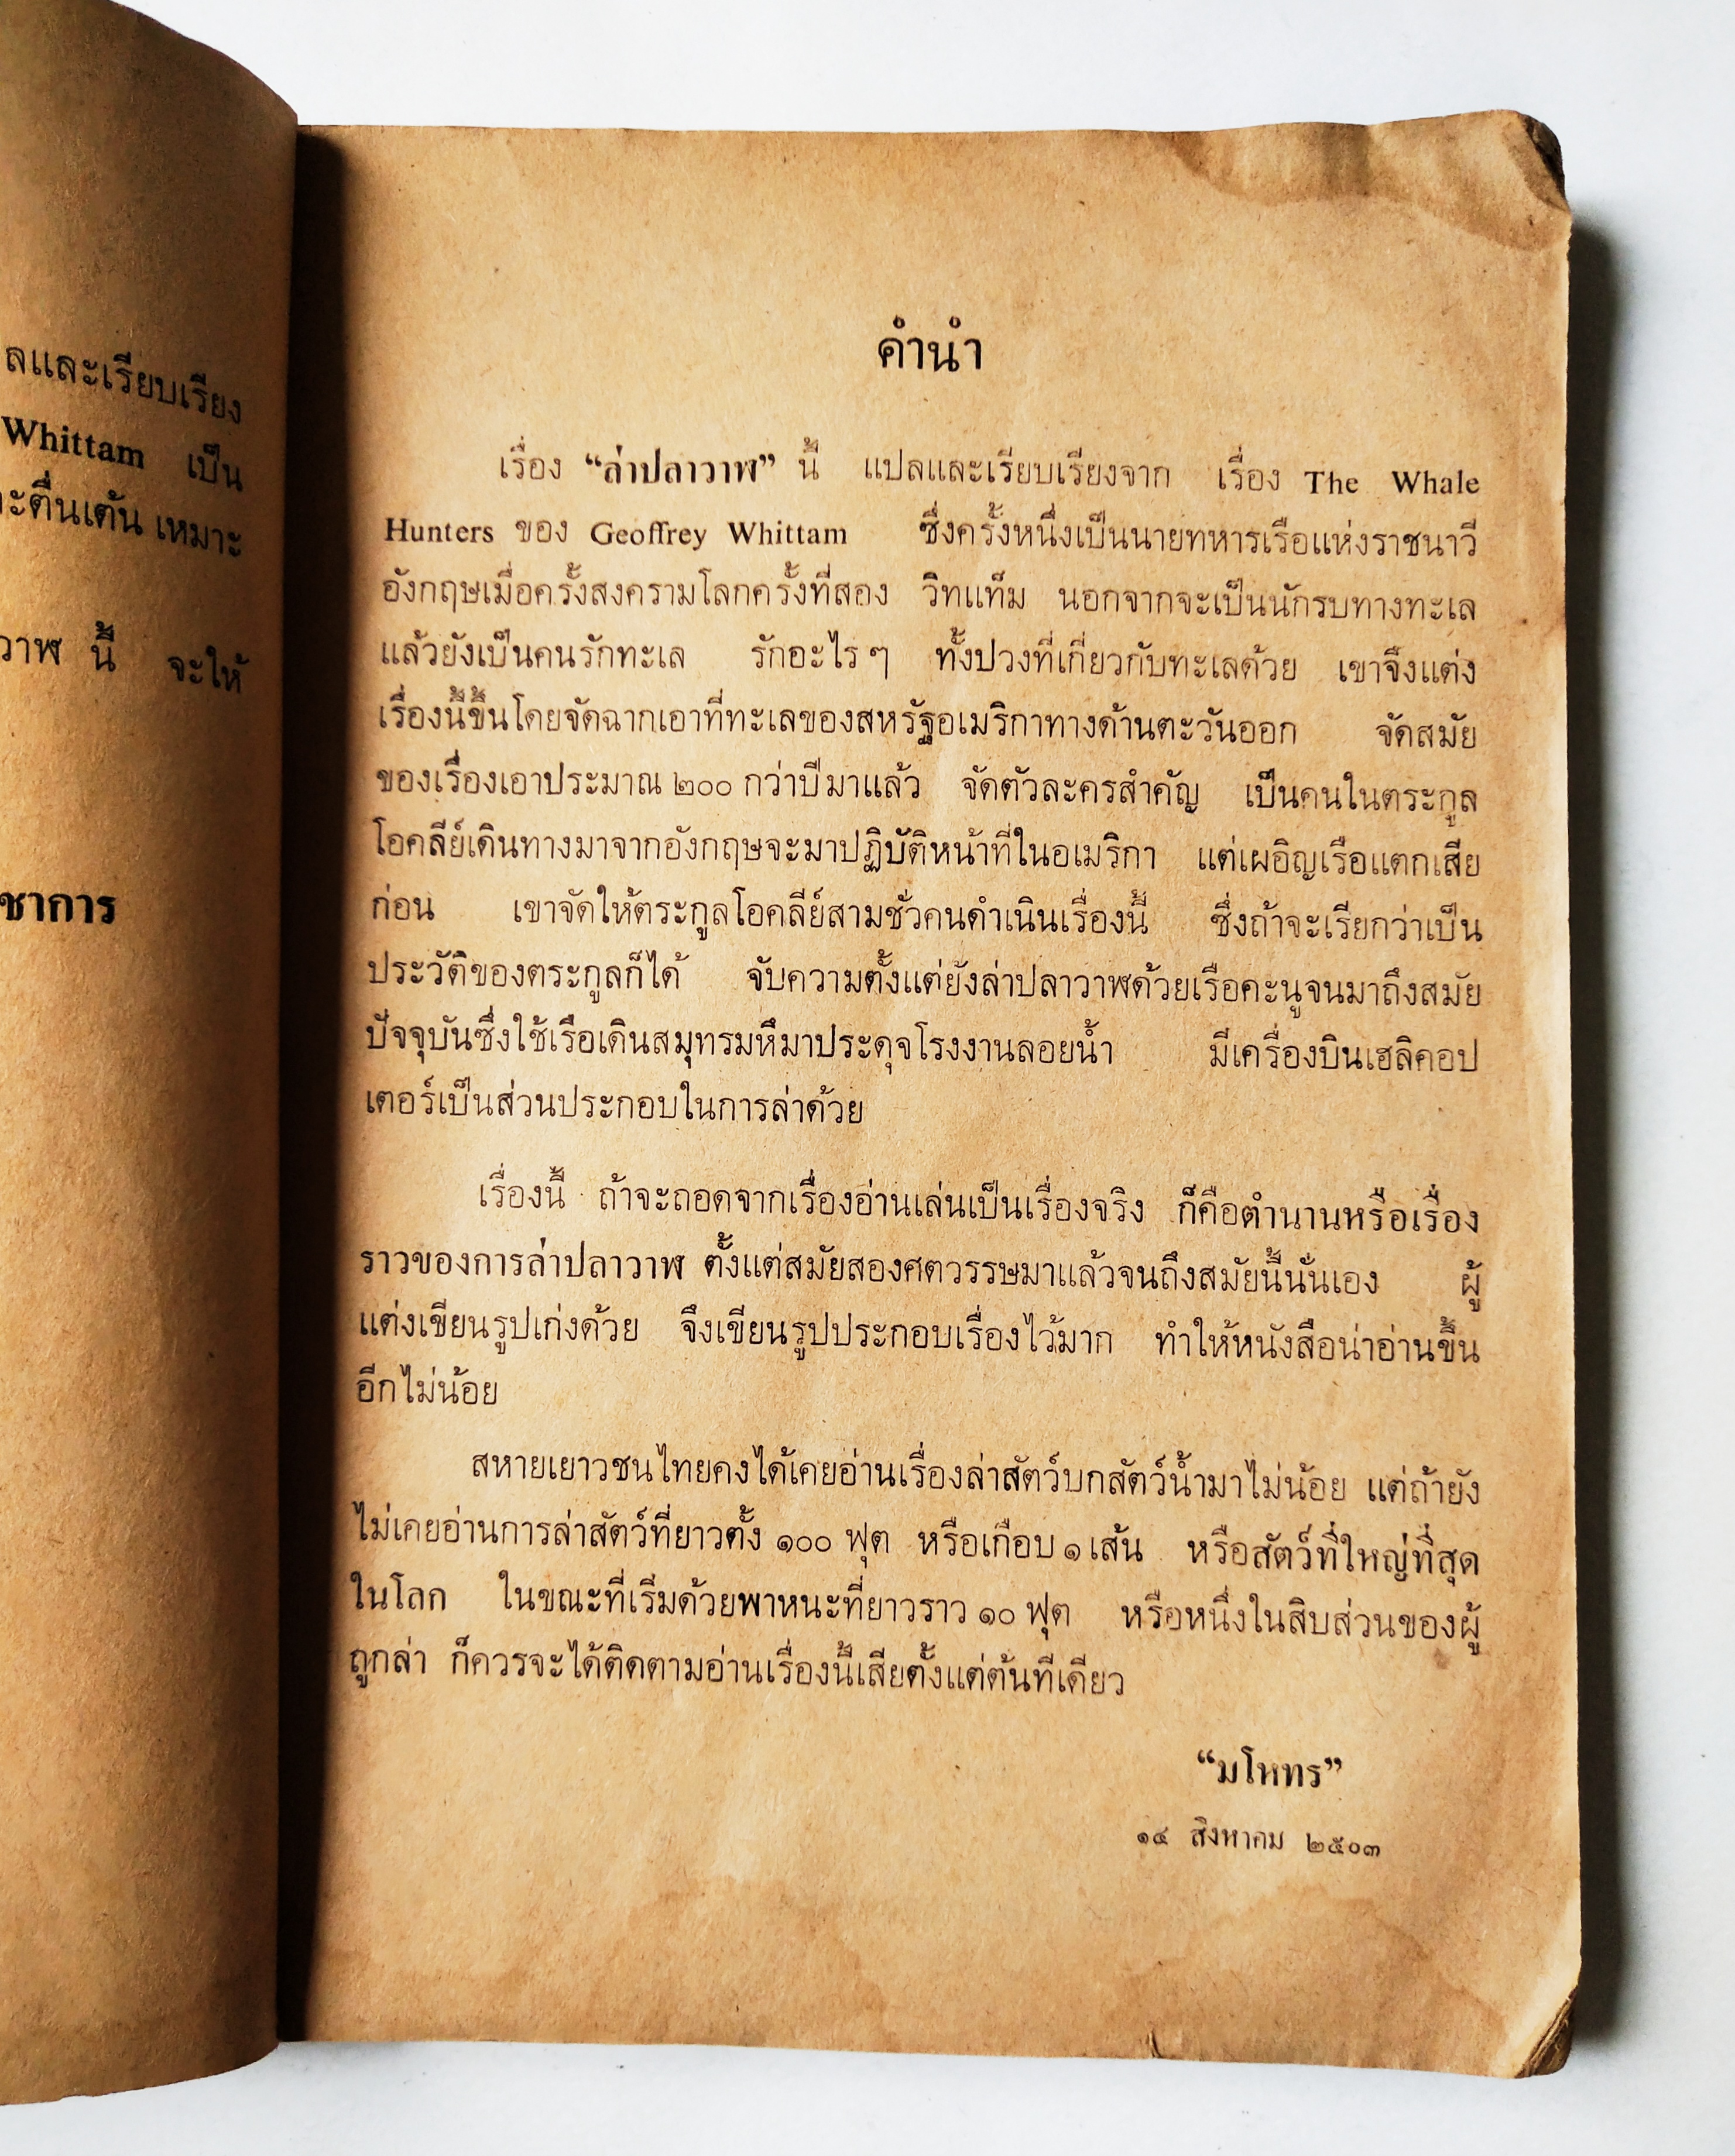 ลและเรียบเรียง
Whittam เป็น
ะตื่นเต้น เหมาะ
วาฬ นี้ จะให้
ชาการ
คำนำ
เรื่อง “ล่าปลาวาฬ” นี้ แปลและเรียบเรียงจาก เรื่อง The Whale
Hunters ของ Geoffrey Whittam ซึ่งครั้งหนึ่งเป็นนายทหารเรือแห่งราชนาวี
อังกฤษเมื่อครั้งสงครามโลกครั้งที่สอง วิทแท็ม นอกจากจะเป็นนักรบทางทะเล
แล้วยังเป็นคนรักทะเล รักอะไร ๆ ทั้งปวงที่เกี่ยวกับทะเลด้วย เขาจึงแต่ง
เรื่องนี้ขึ้นโดยจัดฉากเอาที่ทะเลของสหรัฐอเมริกาทางด้านตะวันออก จัดสมัย
ของเรื่องเอาประมาณ ๒๐๐ กว่าปีมาแล้ว จัดตัวละครสำคัญ เป็นคนในตระกูล
โอคลีย์เดินทางมาจากอังกฤษจะมาปฏิบัติหน้าที่ในอเมริกา แต่เผอิญเรือแตกเสีย
ก่อน เขาจัดให้ตระกูลโอคลีย์สามชั่วคนดำเนินเรื่องนี้ ซึ่งถ้าจะเรียกว่าเป็น
ประวัติของตระกูลก็ได้ จับความตั้งแต่ยังล่าปลาวาฬด้วยเรือคะนูจนมาถึงสมัย
ปัจจุบันซึ่งใช้เรือเดินสมุทรมหึมาประดุจโรงงานลอยน้ำ มีเครื่องบินเฮลิคอป
เตอร์เป็นส่วนประกอบในการล่าด้วย
เรื่องนี้ ถ้าจะถอดจากเรื่องอ่านเล่นเป็นเรื่องจริง ก็คือตำนานหรือเรื่อง
ราวของการล่าปลาวาฬ ตั้งแต่สมัยสองศตวรรษมาแล้วจนถึงสมัยนี้นั่นเอง ผู้
แต่งเขียนรูปเก่งด้วย จึงเขียนรูปประกอบเรื่องไว้มาก ทำให้หนังสือน่าอ่านขึ้น
อีกไม่น้อย
สหายเยาวชนไทยคงได้เคยอ่านเรื่องล่าสัตว์บกสัตว์น้ำมาไม่น้อย แต่ถ้ายัง
ไม่เคยอ่านการล่าสัตว์ที่ยาวตั้ง ๑๐๐ ฟุต หรือเกือบ ๑ เส้น หรือสัตว์ที่ใหญ่ที่สุด
ในโลก ในขณะที่เริ่มด้วยพาหนะที่ยาวราว ๑๐ ฟุต หรือหนึ่งในสิบส่วนของผู้
ถูกล่า ก็ควรจะได้ติดตามอ่านเรื่องนี้เสียตั้งแต่ต้นทีเดียว
“มโหทร”
๑๔ สิงหาคม ๒๕๐๓